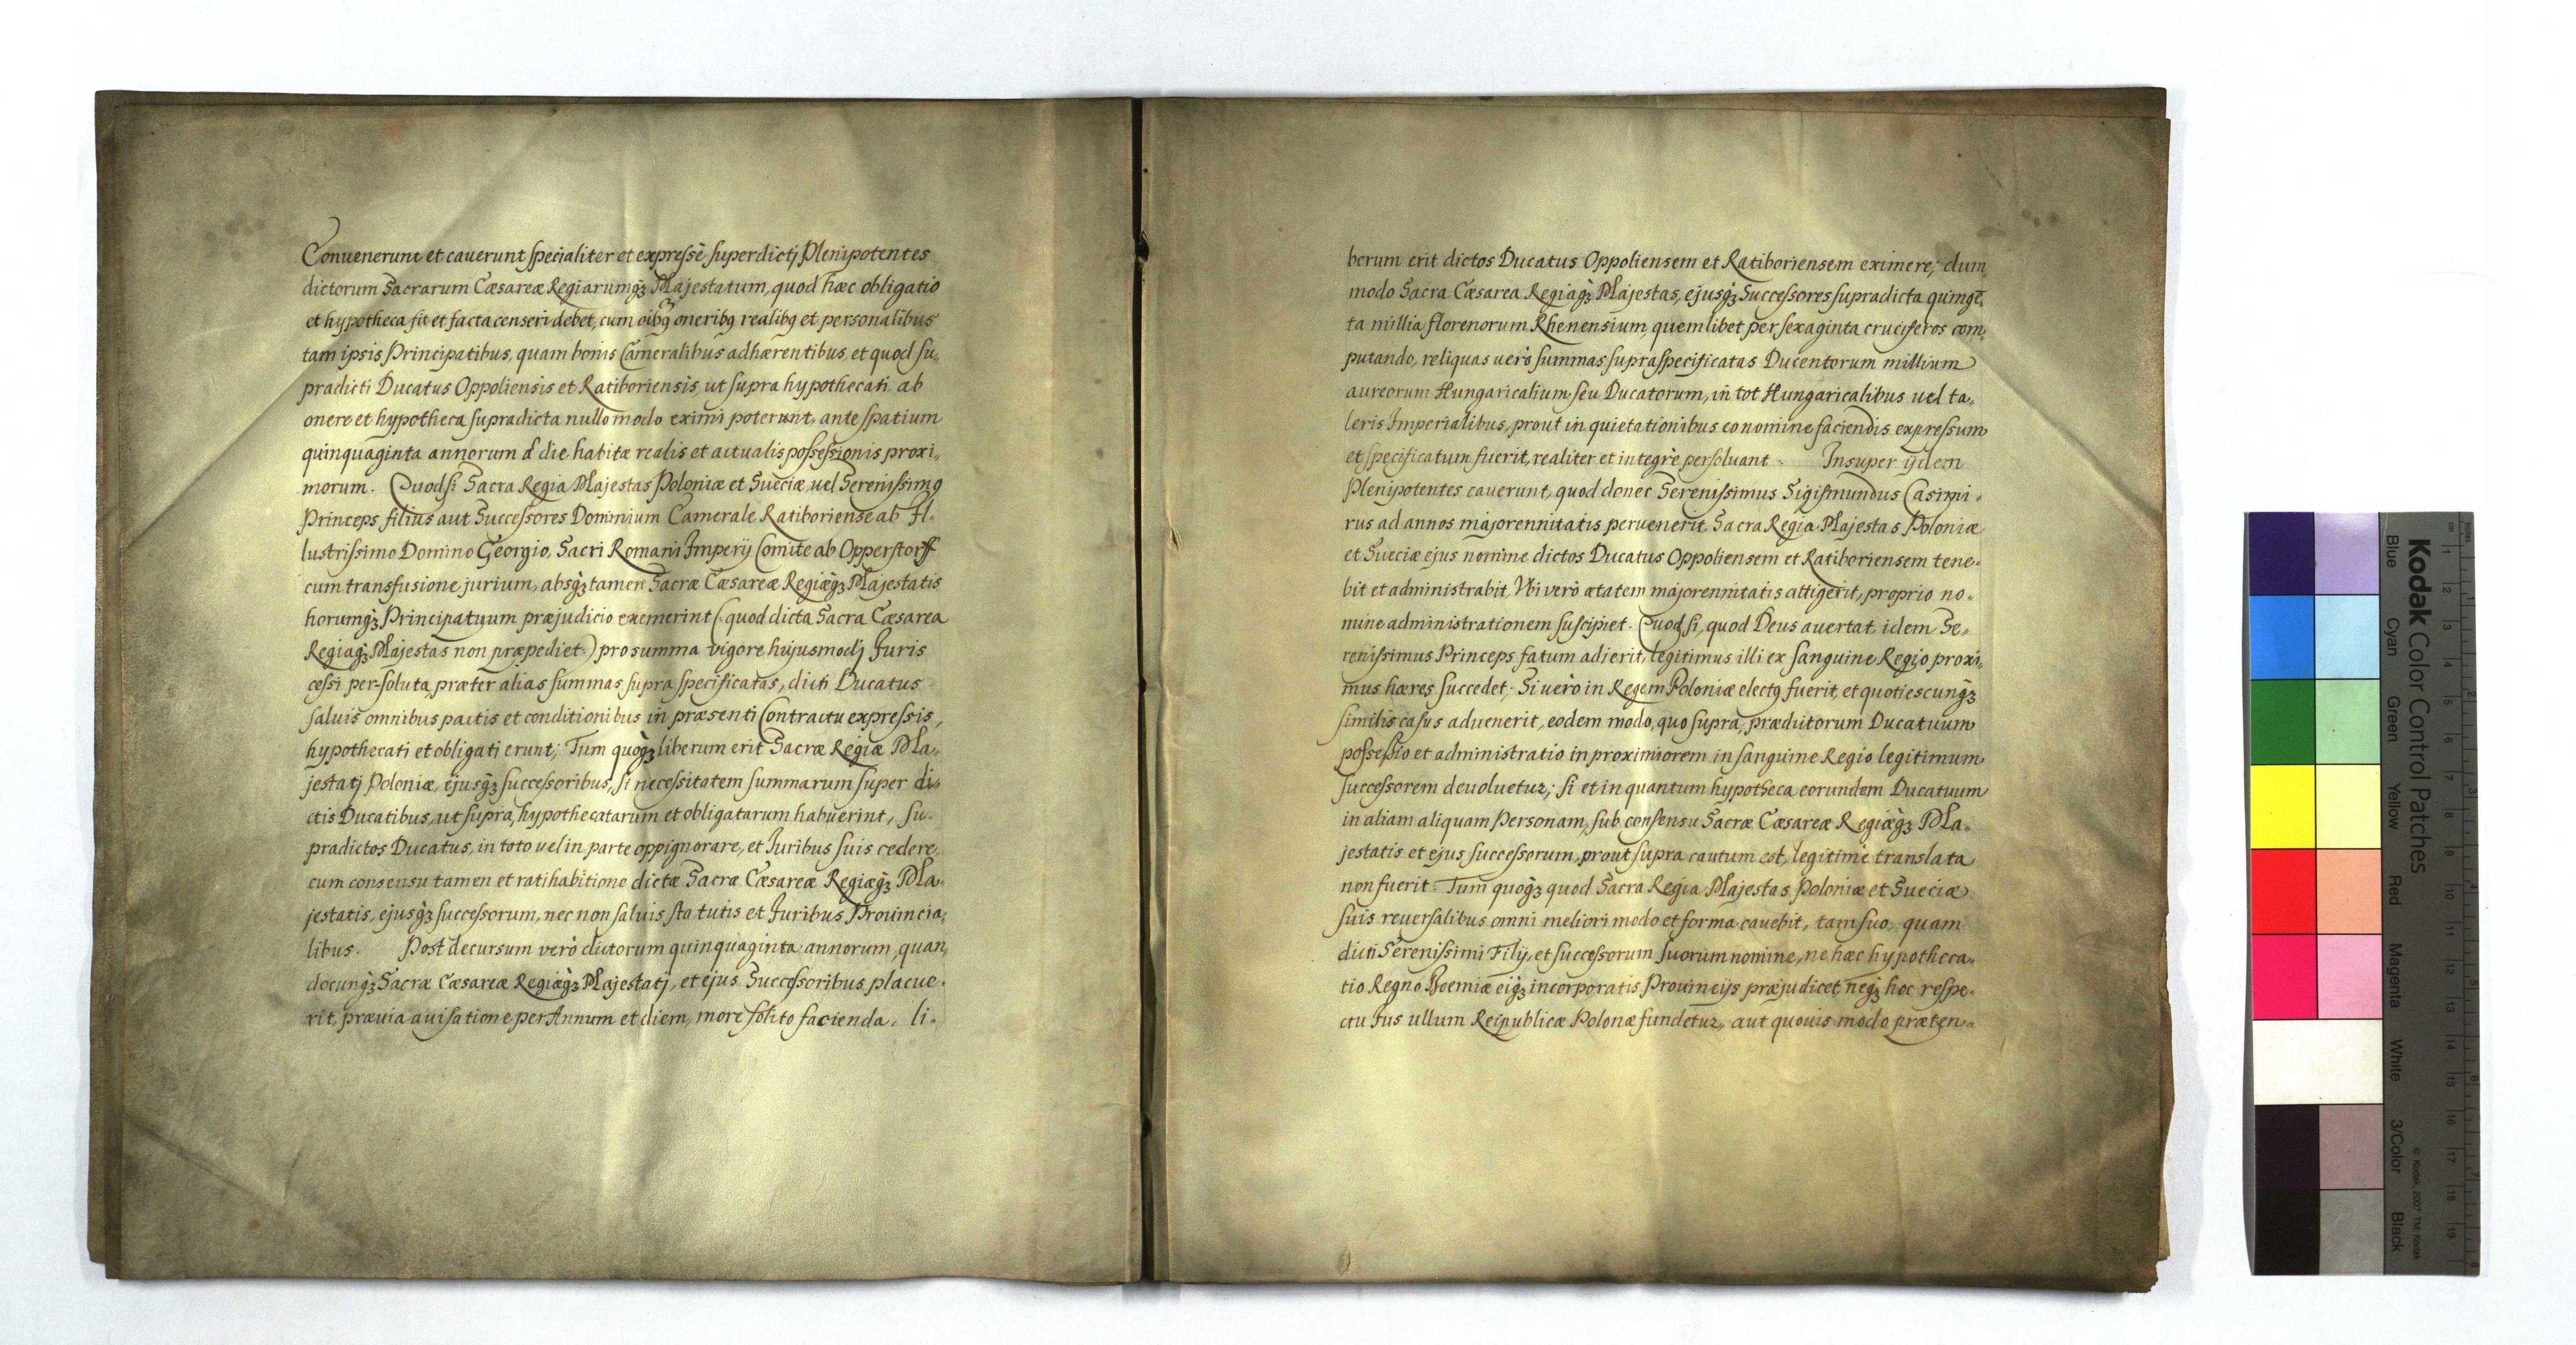 Conuenerunt et cauerunt specialiter et expressè superdictj Plenipotentes
dictorum Sacrarum Cæsareæ Regiarumq́ꝫ Majestatum, quod hæc obligatio
et hypotheca sit et facta censeri debet, cum oibꝯ oneribꝯ realibꝯ et personalibus
tam ipsis Principatibus, quam bonis Cameralibus adhærentibus, et quod su„
pradicti Ducatus Oppoliensis et Ratiboriensis, ut supra hypothecati ab
onere et hypotheca supradicta nullo modo eximi poterunt, ante spatium
quinquaginta annorum à die habitæ realis et actualis possessionis proxi„
morum. Quodsi Sacra Regia Majestas Poloniæ et Sueciæ, uel Serenissimꝯ
Princeps filius aut Successores Dominium Camerale Ratiboriense ab Il„
lustrissimo Domino Georgio, Sacri Romani Imperij Comite ab Opperstorff
cum transfusione jurium, absq́ꝫ tamen Sacræ Cæsareæ Regiæq́ꝫ Majestatis
horumq́ꝫ Principatuum præjudicio exemerint (: quod dicta Sacra Cæsarea
Regiaq́ꝫ Majestas non præpediet:) pro summa vigore hujusmodj Juris
cessi per-soluta, præter alias summas supra specificatas, dicti Ducatus
saluis omnibus pactis et conditionibus in præsenti Contractu expressis,
hypothecati et obligati erunt; Tum quoq́ꝫ liberum erit Sacræ Regiæ Ma„
jestatj Poloniæ, ejusq́ꝫ successoribus, si necessitatem summarum super di„
ctis Ducatibus, ut supra, hypothecatarum et obligatarum habuerint, su„
pradictos Ducatus, in toto uel in parte oppignorare, et Juribus suis cedere,
cum consensu tamen et ratihabitione dictæ Sacræ Cæsareæ Regiæq́ꝫ Ma„
jestatis, ejusq́ꝫ successorum, nec non saluis statutis et Juribus Prouincia„
libus. Post decursum verò dictorum quinquaginta annorum, quan„
docunq́ꝫ Sacræ Cæsareæ Regiæq́ꝫ Majestatj, et ejus Successoribus placue„
rit, præuia auisatione per Annum et diem, more solito facienda, li„
berum erit dictos Ducatus Oppoliensem et Ratiboriensem eximere; dum„
modo Sacra Cæsarea Regiaq́ꝫ Majestas, ejusq́ꝫ Successores supradicta quingē„
ta millia florenorum Rhenensium, quemlibet per sexaginta cruciferos com„
putando, reliquas uerò summas supraspecificatas Ducentorum millium
aureorum Hungaricalium seu Ducatorum, in tot Hungaricalibus uel ta„
leris Imperialibus, prout in quietationibus eo nomine faciendis expressum
et specificatum fuerit, realiter et integrè persoluant. Insuper ijdem
Plenipotentes cauerunt, quod donec Serenissimus Sigismundus Casimi„
rus ad annos majorennitatis peruenerit Sacra Regia Majestas Poloniæ
et Sueciæ ejus nomine dictos Ducatus Oppoliensem et Ratiboriensem tene„
bit et administrabit, Vbi verò ætatem majorennitatis attigerit, proprio no„
mine administrationem suscipiet. Quod si, quod Deus auertat, idem Se„
renissimus Princeps fatum adierit, legitimus illi ex sanguine Regio proxi„
mus hæres succedet; Si uerò in Regem Poloniæ electꝯ fuerit, et quotiescunq́ꝫ
similis casus aduenerit, eodem modo, quo supra, prædictorum Ducatuum
possessio et administratio in proximiorem in sanguine Regio legitimum
successorem deuoluetur; si et in quantum hypotheca eorundem Ducatuum
in aliam aliquam Personam, sub consensu Sacræ Cæsareæ Regiæq́ꝫ Ma„
jestatis et ejus successorum, prout supra cautum est, legitimè translata
non fuerit. Tum quoq́ꝫ quod Sacra Regia Majestas Poloniæ et Sueciæ
suis reuersalibus omni meliori modo et forma cauebit, tam suo, quam
dicti Serenissimi Filij, et successorum suorum nomine, ne hæc hypotheca„
tio Regno Boemiæ eiqꝫ incorporatis Prouincijs præjudicet, neqꝫ hoc respe„
ctu Jus ullum Reipublicæ Polonæ fundetur, aut quouis modo præten„
Kodak Color Control Patches
Blue Cyan Green Yellow Red Magenta White 3/Color Black